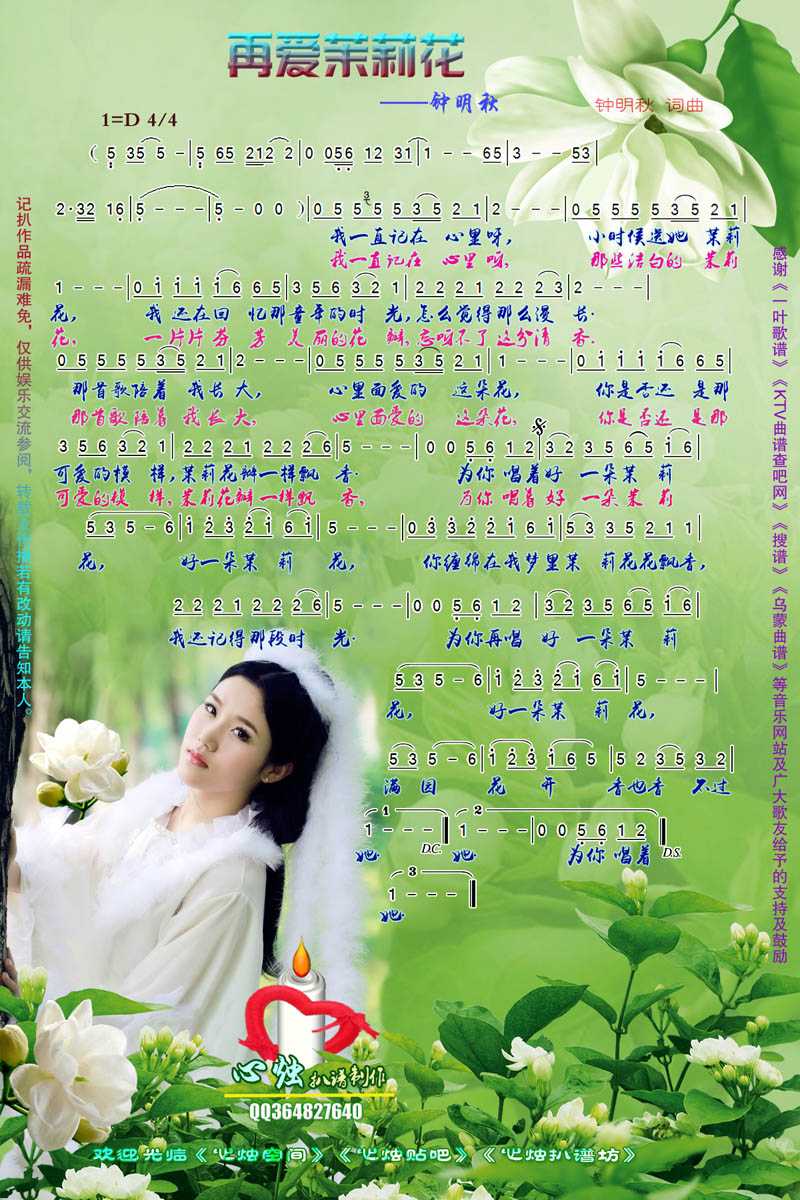 再爱茉莉花
——钟明秋
钟明秋 词曲
1=D 4/4
( 5 35 5 - | 5 65 212 2 | 0 056 12 31 | 1 - - 65 | 3 - - 53 |
2·32 16 | 5 - - - | 5 - 0 0 ) | 0 5 5 5 5 35 21 | 2 - - - | 0 5 5 5 5 35 21 |
我一直记在 心里呀， 小时候送她 茉莉
我一直记在 心里呀， 那些洁白的 茉莉
1 - - - | 0 i i i i 6 65 | 3 5 6 3 2 1 | 2 2 2 1 2 2 2 3 | 2 - - - |
花， 我还在回 忆那童年的时 光，怎么觉得那么漫 长·
花， 一片片芬 芳 美丽的花 瓣，忘呀不了这分清 香·
0 5 5 5 5 35 21 | 2 - - - | 0 5 5 5 5 35 21 | 1 - - - | 0 i i i i 6 65 |
那首歌陪着 我长大， 心里面爱的 这朵花， 你是否还 是那
那首歌陪着 我长大， 心里面爱的 这朵花， 你是否还 是那
3 5 6 3 2 1 | 2 2 2 1 2 2 2 6 | 5 - - - | 0 0 56 12 | 32 35 65 i6 |
可爱的模 样，茉莉花瓣一样飘 香· 为你 唱着好 一朵茉 莉
可爱的模 样，茉莉花瓣一样飘 香， 为你 唱着好 一朵茉 莉
5 35 - 6 | i2 32i 6i | 5 - - - | 03 2 32 i6i | 5 35 21 1 |
花， 好一朵茉 莉 花， 你缠绵在我梦里茉 莉花花飘香，
2 2 2 1 2 2 2 6 | 5 - - - | 0 0 56 12 | 32 35 65 i6 |
我还记得那段时 光· 为你再唱 好 一朵茉 莉
5 35 - 6 | i2 32i 6i | 5 - - - |
花， 好一朵茉 莉 花，
5 35 - 6 | i23 i65 | 52 35 32 |
满园 花 开 香也香 不过
1 2
1 - - - | 1 - - - | 0 0 56 12 |
她· D.C. 她· 为你 唱着 D.S.
3
1 - - - |
她·
记扒作品疏漏难免，仅供娱乐交流参阅，转载及传播若有改动请告知本人。
感谢《一叶歌谱》《KTV曲谱查吧网》《搜谱》《乌蒙曲谱》等音乐网站及广大歌友给予的支持及鼓励
心烛扒谱制作
QQ364827640
欢迎光临《心烛空间》《心烛贴吧》《心烛扒谱坊》